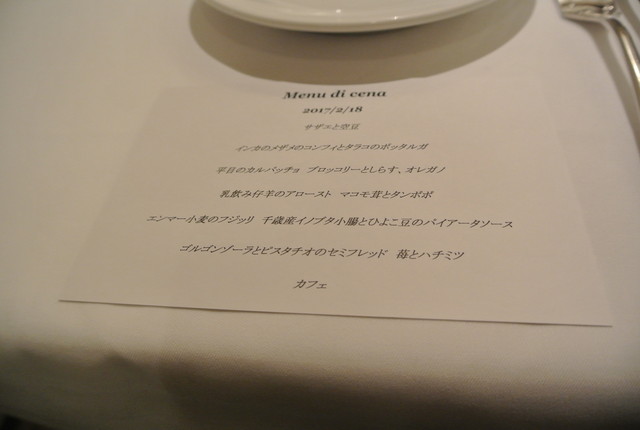 Menu di cena
2017/2/18
サザエと空豆
インカのメザメのコンフィとタラコのボッタルガ
平目のカルパッチョ ブロッコリーとしらす、オレガノ
乳飲み仔羊のアロースト マコモ茸とタンポポ
エンマー小麦のフジッリ 千歳産イノブタ小腸とひよこ豆のパイアータソース
ゴルゴンゾーラとピスタチオのセミフレッド 苺とハチミツ
カフェ